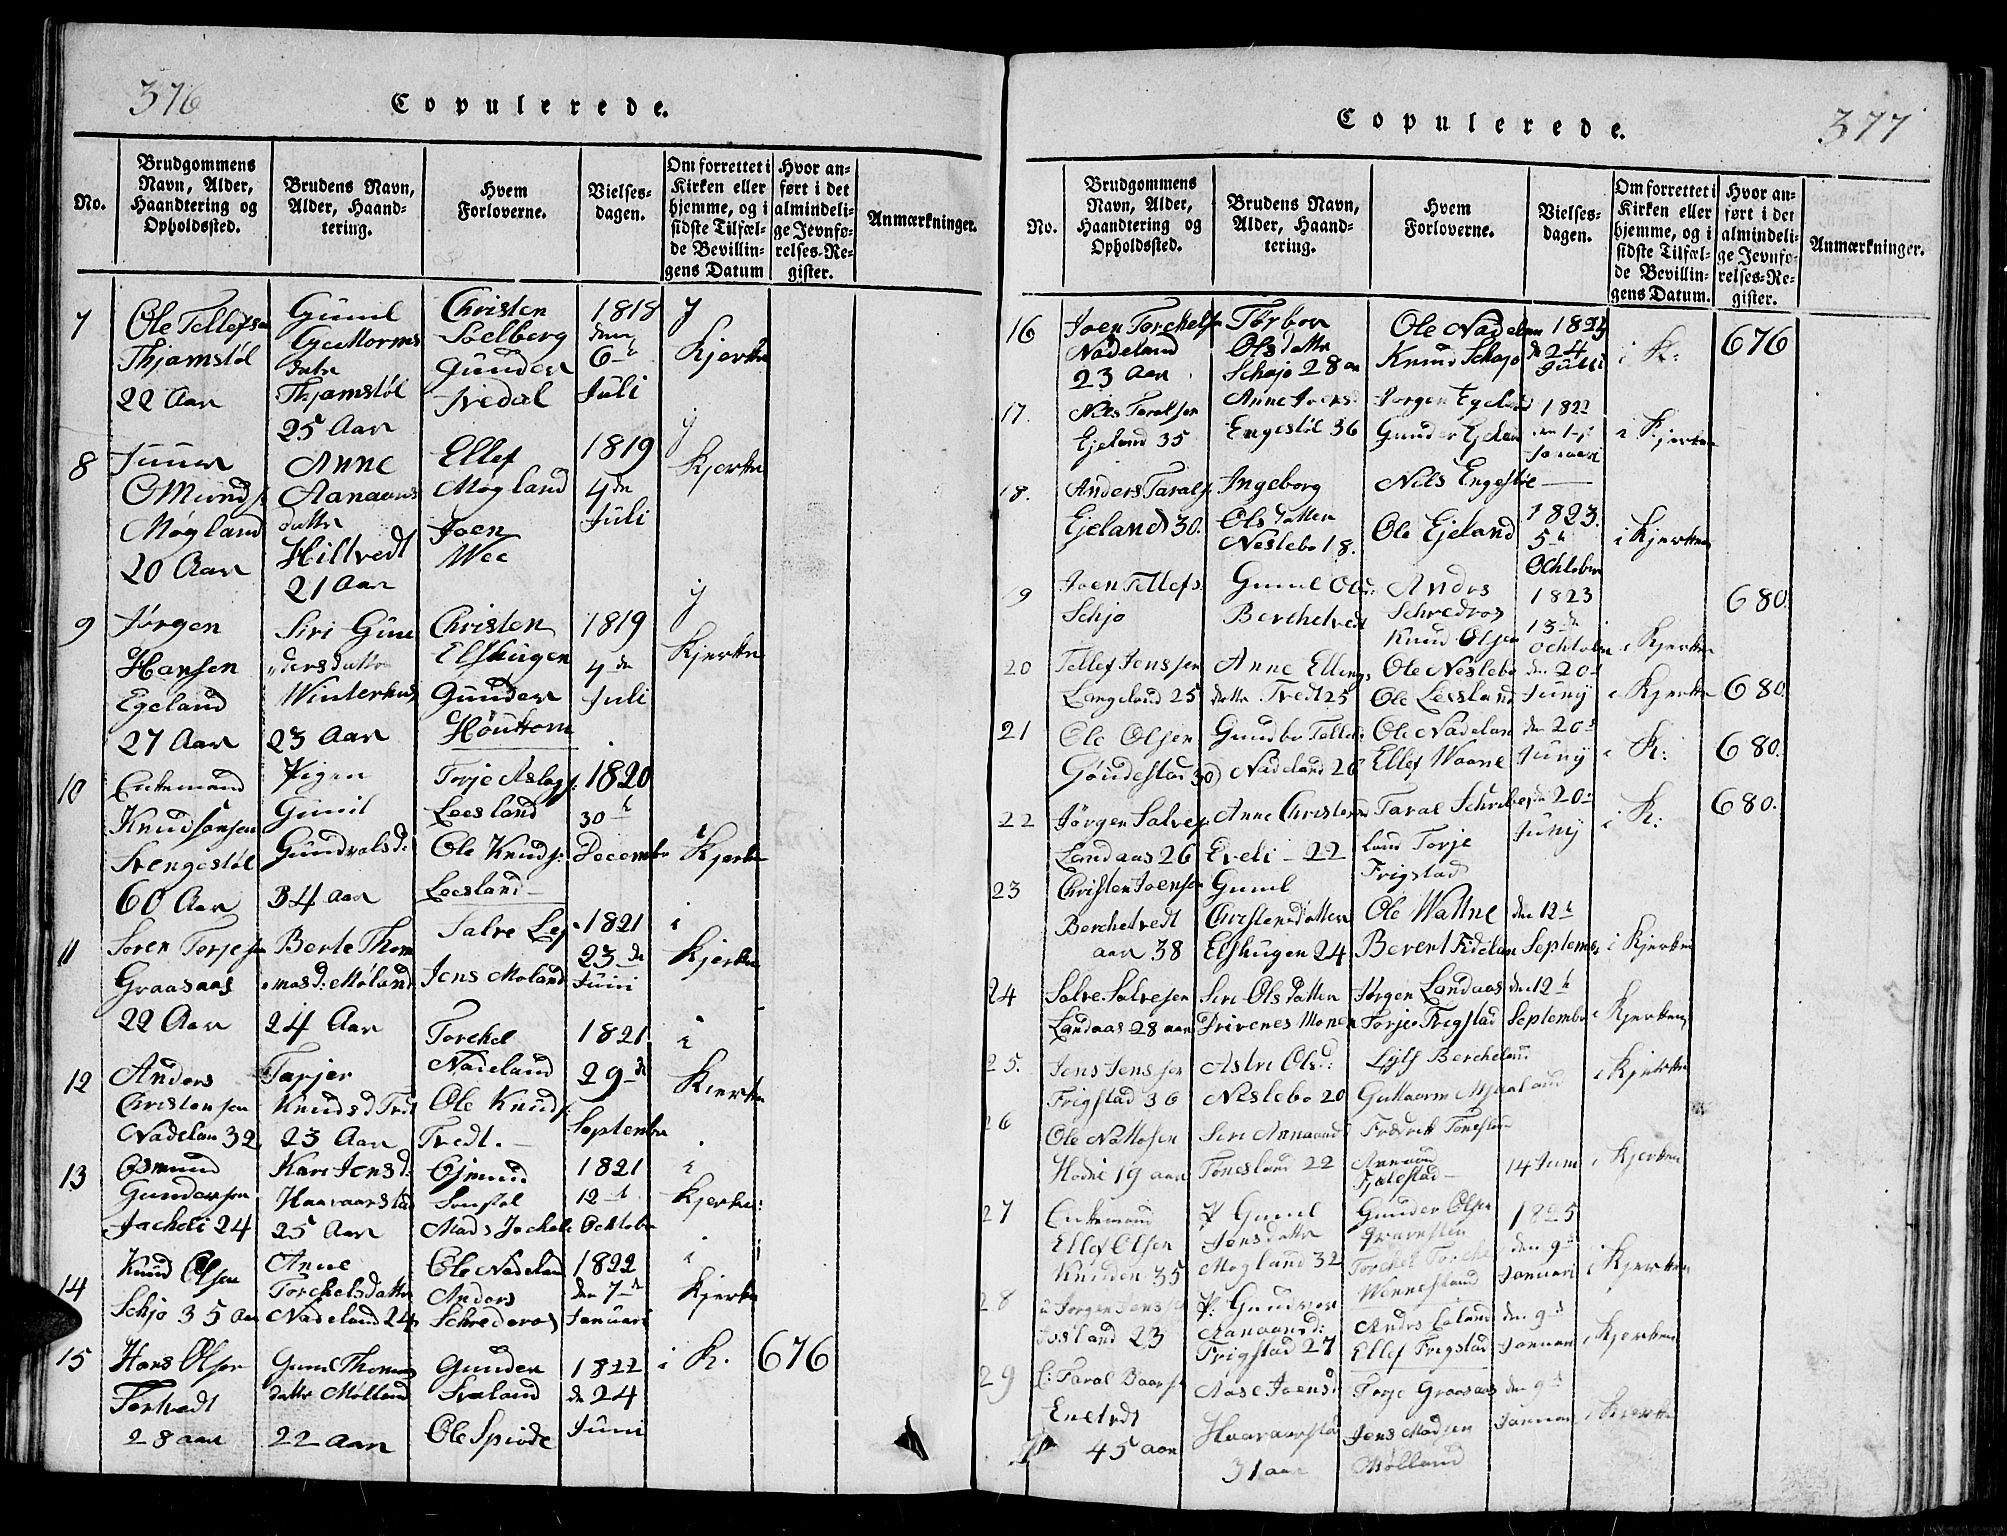 376
Copulerede.
No.
Brudgommens Navn, Alder, Haandtering og Opholdssted.
Brudens Navn, Alder, Haandtering.
Hvem Forloverne.
Vielsesdagen.
Om forrettet i Kirken eller hjemme, og i sidste Tilfælde Bevillingens Datum
Hvor anført i det almindelige Jevnførelses-Register.
Anmærkninger.
7
Ole Tellefsen
Thjamstøl
22 Aar
Gunil
datr
Thjamstøl
25 Aar
Christen
Soelberg
Gunder
1818
6
Juli
Kjerken
8
Mögland
20 Aar
Anne
Aanaans
datter
Hiltvedt
21 Aar
Ellef
Mogland
Joen
Wee
1819
4de
Juli
Kjerken
9
Jørgen
Hansen
Egeland
27 Aar
Siri Gun
dersdatter
Winterhus
23 Aar
Christen
Elshugen
Gunder
1819
4de
Juli
Kjerken
10
Enkemand
Knudsonsen
60 Aar
Pigen
Gunil
34 aar
Torje Aslags:
Leesland
Ole Knuds:
Leesland
1820
30
December
Kjerken
11
Soren Torjesen
Graasaas
22 Aar
Berte Thom
masd: Møland
24 Aar
Salve
Jens Moland
1821
23de
Juni
i
Kjerken
12
Anders
Christensen
Nadelan 32
Tarjer
Knudsd Tret
23 Aar
Torchel
Nadeland
Ole Knuds
Tredt.
1821
29de
September
i
Kierken
13
Osmund
Gundersen
Jacheli 24
Kari Jensd:
Haavaarstad
25 Aar
Osmund
Mads Jacheli
1821
12
Octtober
i
Kjerken
14
Knud Olsen
Schjo 35 Aar
Anne
Torchelsdatter
Nadeland 24
Ole Nadeland
Anders
Schrederos
1822
den 7de
Januari
i
Kjerken
15
Hans Olsen
Tortvedt
28 aar
Gunil Thomas
datter Mølland
22 aar
Gunder
Ole Spiode
1822
de 24
Juni
i K.
676
377
Copulerede.
No.
Brudgommens Navn, Alder, Haandtering og Opholdssted.
Brudens Navn, Alder, Haandtering.
Hvem Forloverne.
Vielsesdagen.
Om forrettet i Kirken eller hjemme, og i sidste Tilfælde Bevillingens Datum.
Hvor anført i det almindelige Jevnførelses-Register.
Anmærkninger.
16
Joen Torchels
Nadeland
23 Aar
Torbor
Olsdatter
Schøjo 28 aar
Ole Nadeland
Knud Schøjo
de 24
i K:
676
17.
Nils Taralsen
Ejeland 35
Anne Joens
Engestøl 36
Jorgen Egeland
Gunder Ejeland
1822
Januari
i Kjerken
18.
Anders Taralsen
Ejeland 30.
Ingeborg
Olsdatter
Neslebo 18.
Nils Engestøl
Ole Ejeland
1823.
5
Ochtober
i Kjerken
9
Joen Tellefs
Schjo
Gunil Ols:
Berchetvedt
Andrs
Schredros
Knud Olsen
1823
13de
Ochtober
i Kjerken
680.
20
Tellef Jenssen
Langeland 25
Anne Ellings
datter Tredt 25
Ole Neslebo
Ole Leesland
den 20
Juny
i Kjerken
680.
21
Ole Olsen
Gøndestad 30
Gundbor
Nadeland 26
Ole Nadelan
Ellef Waane
den 20
Juny
i K:
680.
22
Jørgen Salves
Landaas 26
Anne Christens
Eveli - 22
Taral
land Torje
Frigstad
den 20
Juny
i K:
680.
23
Christen Joensen
Berchetvedt
aar 38
Gunil
Christensdatter
Elshugen 24
Ole Wattne
Berent Fidelan
den 12
September
i Kjerken
24
Salve Salvesen
Landaas 28 aar
Siri Olsdatter
Drivenes Monen
Jørgen Landaas
Torje Frigstad
den 12
September
i Kjerken
25.
Jens Jenssen
Frigstad 36
Astri Olsd:
Neslebo 20
Bercheland
i Kjerken
26
Ole Nattosen
Hodne 19 aar
Siri Aanaands
Tonesland 22
Fredrik
Aanaand
14 Juni
i Kjerken
27
Enkemand
Ellef Olsen
Knuden 35
P Gunil
Jonsdatter
Mogland 32
Gunder Olsen
Torchel
1825
den 9de
Januari
i Kjerken
28
Jorgen Jenssen
23
P: Gundvor
Aanaansd:
Frigstad 27
Andrs
Ellef Frigstad
den 9de
Januari
i Kjerken
29
E: Taral Baarsen
Enetvdt
45 aar
Aase Joensd
Haavaarstad
31 aar
Torje Graasaas
Jens Madsen
Mølland
den 9de
Januari
i Kjerken